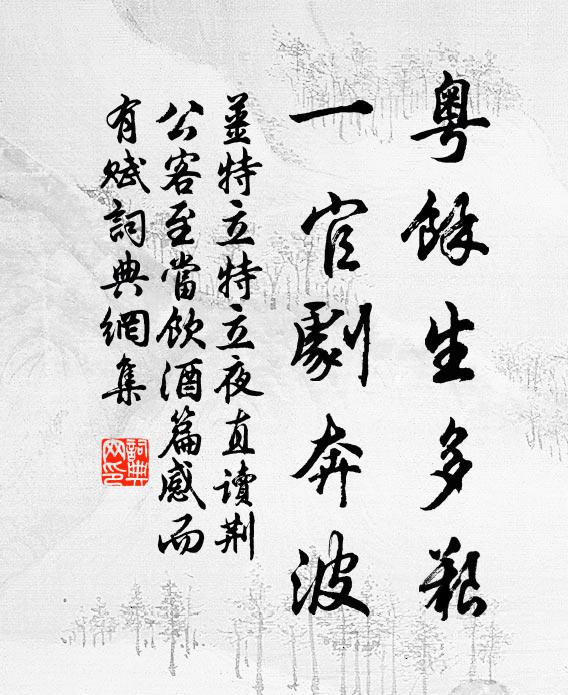 粤餘生多艱
一官劇奔波
姜特立特立夜直讀荆
公客至當飲酒篇感而
有赋詞典網集
詞典
网印